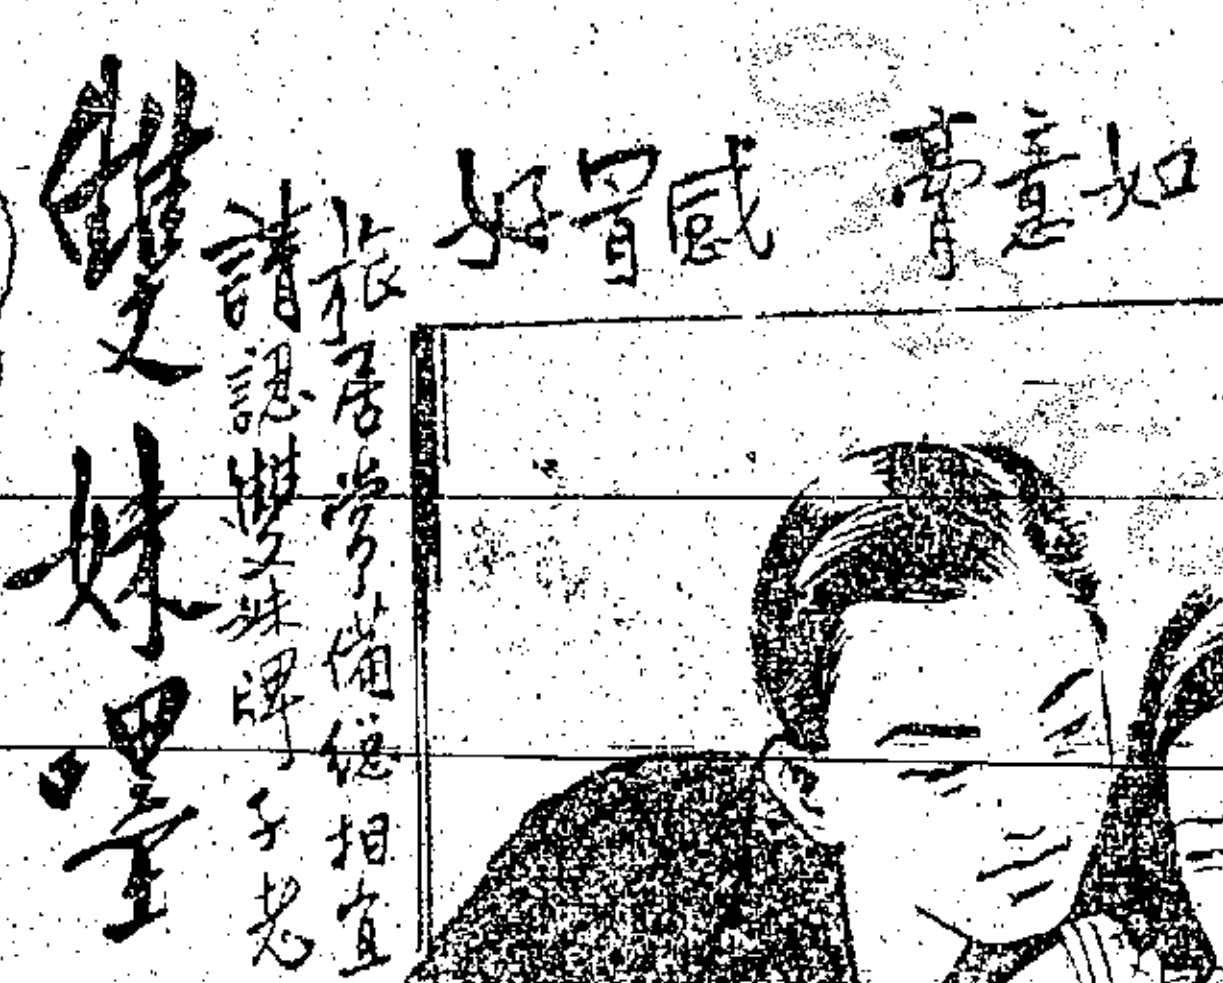 如意膏 感冒好
旅居常備總相宜
請認雙妹牌子老
雙妹嚜